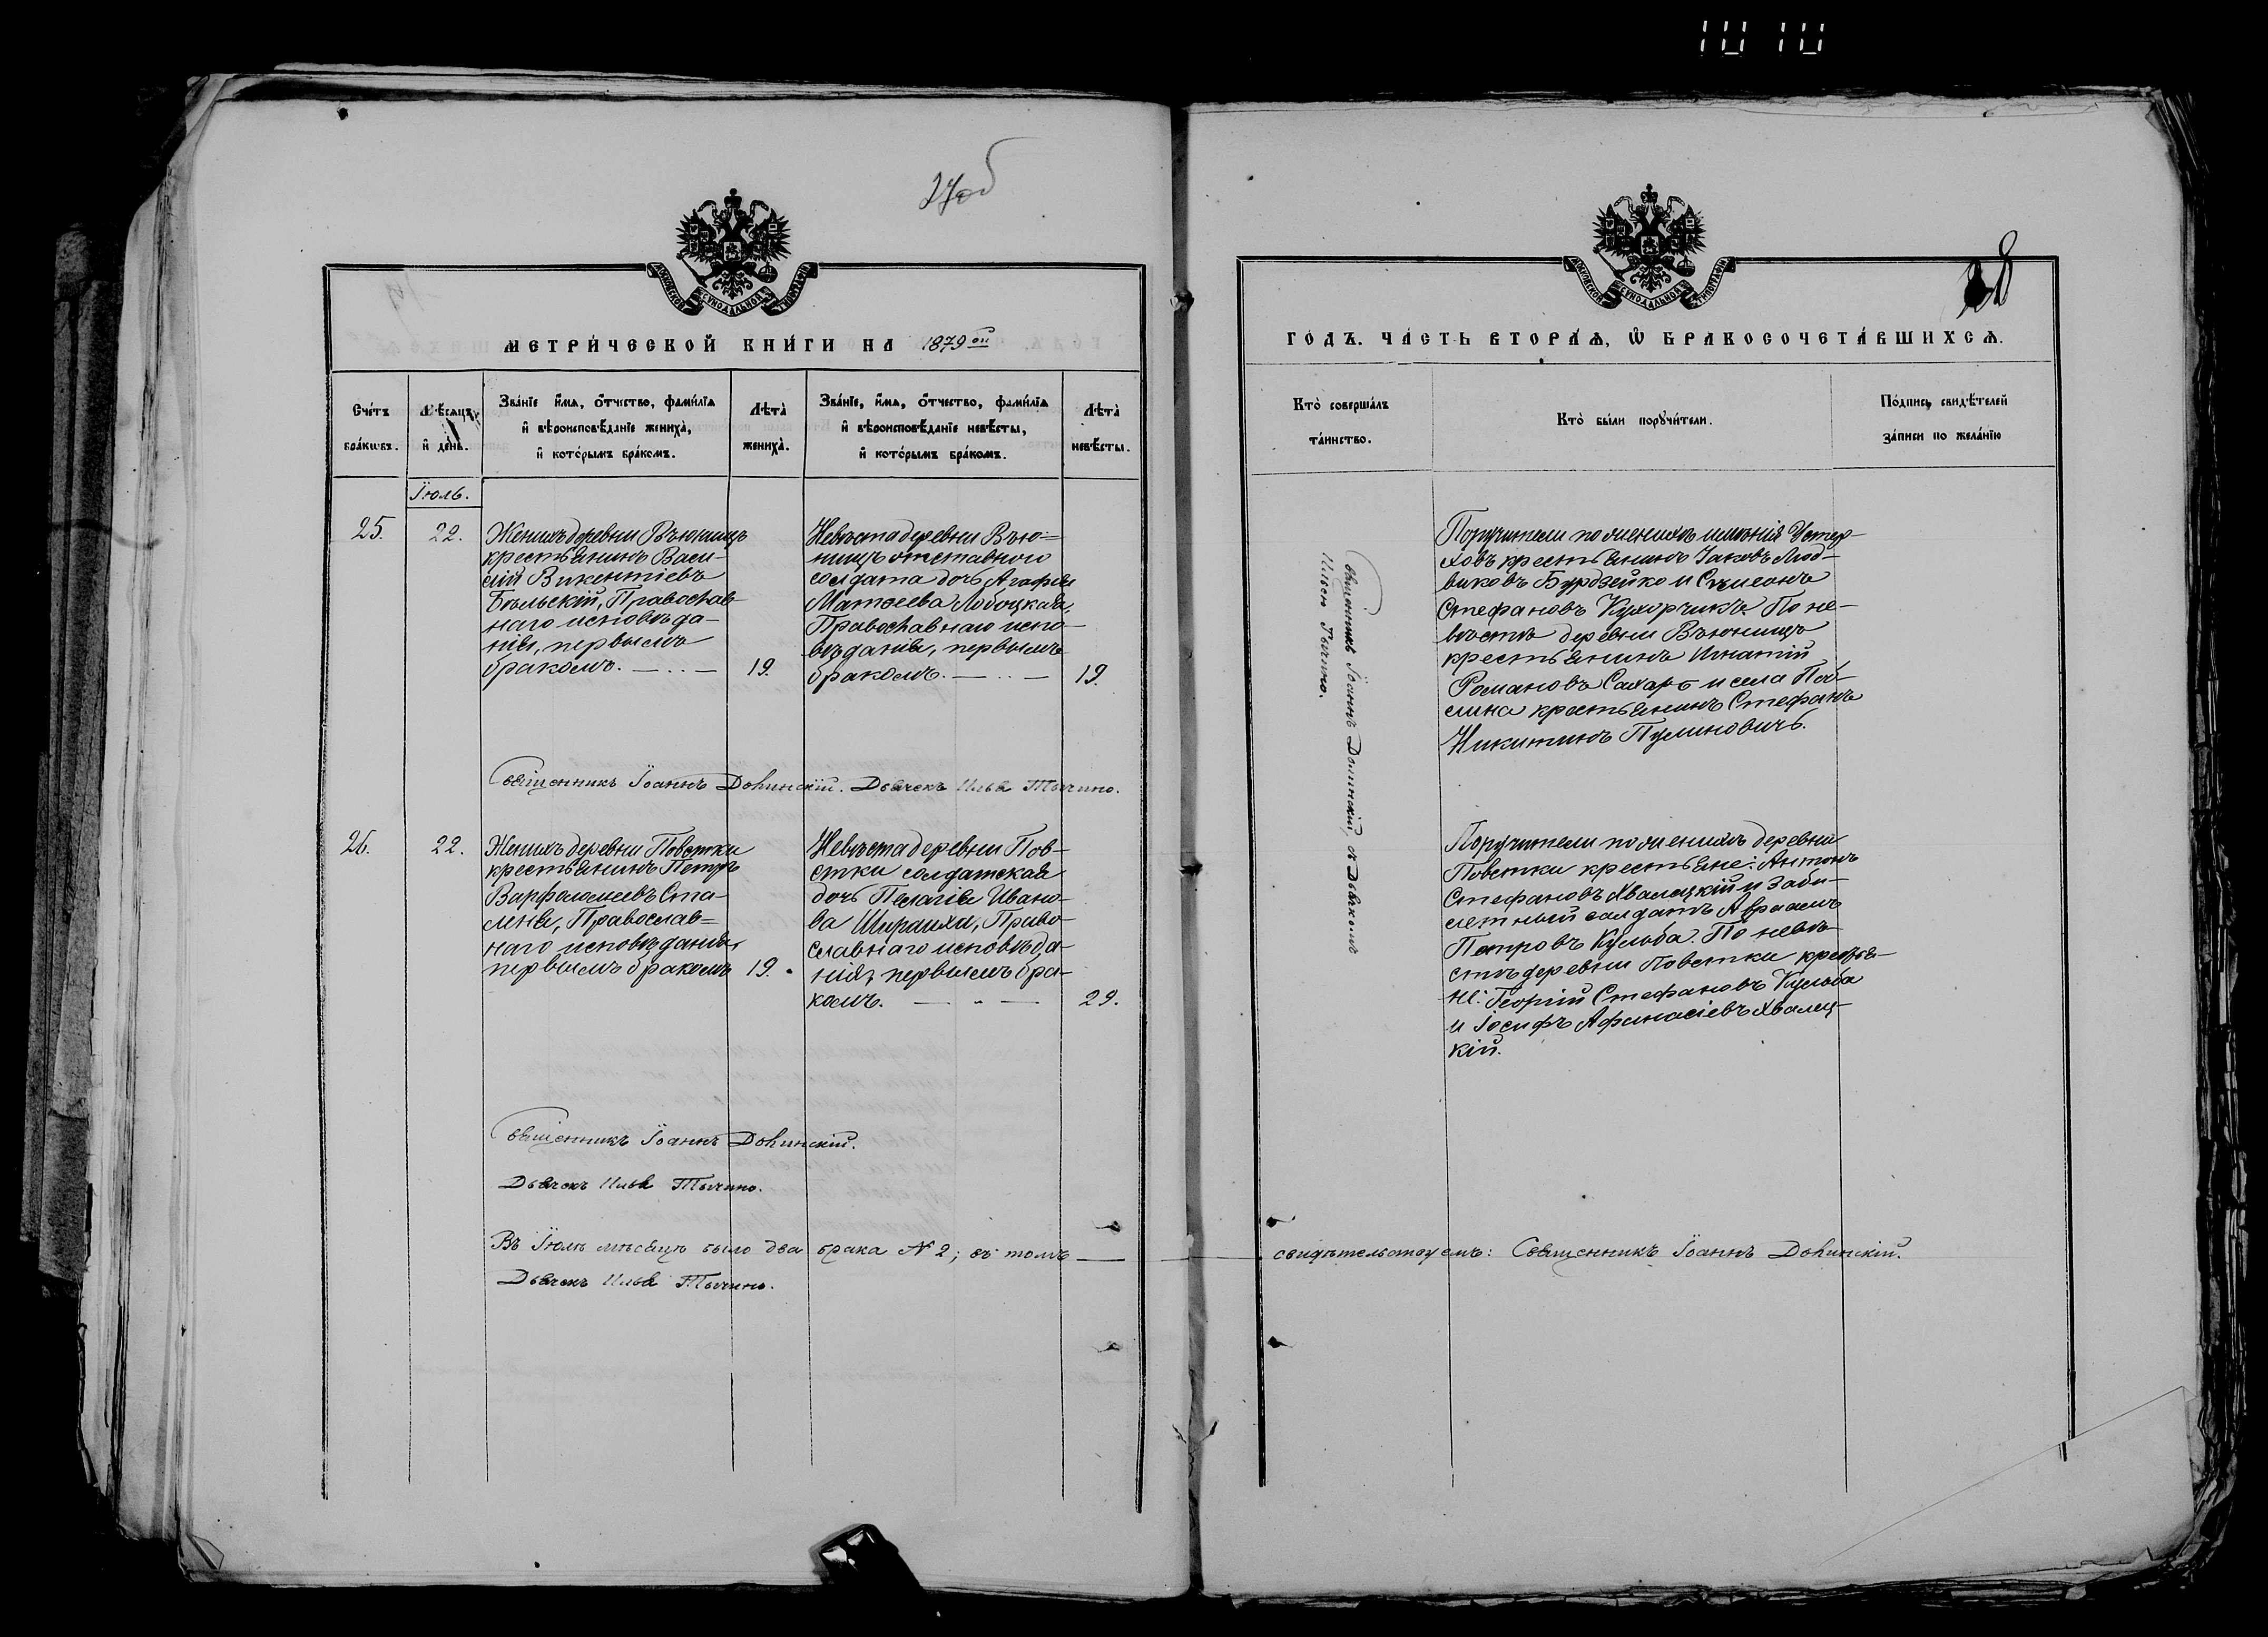 1010
27об
МОСКОВСКОЙ СУНОДАЛЬНОЙ ТИПОГРАФІИ
МЕТРИ́ЧЕСКОЙ КНИ́ГИ НА 1879 ой
Сче́тъ бра́кѡвъ.
Мѣ́сяцъ и҆ де́нь.
Зва́нїе и҆́мѧ, ѻ҆́тчество, фами́лїѧ и҆ вѣроисповѣ́данїе жениха̀, и҆ кото́рымъ бра́комъ.
Лѣта̀ жениха̀.
Зва́нїе, и҆́мѧ, ѻ҆́тчество, фами́лїѧ и҆ вѣроисповѣ́данїе невѣ́сты, и҆ кото́рымъ бра́комъ.
Лѣта̀ невѣ́сты.
Іюль.
25.
22.
Женихъ деревни Вьюнищъ
крестьянинъ Васи-
лій Викентіевъ
Бѣльскій, Православ-
наго исповѣда-
нія, первымъ
бракомъ. — .. —
19.
Невѣста деревни Вью=
нищъ отставного
солдата дочь Агафія
Матѳеева Лобоцкая,
Православнаго испо-
вѣданія, первымъ
бракомъ. — .. —
19.
Священникъ Іоаннъ Долинскій. Дьячекъ Илья Тычино.
26.
22.
Женихъ деревни Повстки
крестьянинъ Петръ
Варфоломеевъ Ста-
Православ=
наго исповѣданія,
первымъ бракомъ
19.
Невѣста деревни Пов-
стки солдатская
дочь Пелагія Ивано-
ва Право-
славнаго исповѣда-
нія, первымъ бра-
комъ. — " —
29.
Священникъ Іоаннъ Долинскій.
Дьячекъ Илья Тычино.
Въ Іюлѣ мѣсяцѣ было два брака № 2; въ томъ —
Дьячекъ Илья Тычино.
28
МОСКОВСКОЙ СУНОДАЛЬНОЙ ТИПОГРАФІИ
ГО́ДЪ. ЧА́СТЬ ВТОРА́Ѧ, Ѽ БРАКОСОЧЕТА́ВШИХСѦ.
Кто̀ соверша́лъ та́инство.
Кто̀ бы́ли порꙋчи́тели.
По́дпись свидѣ́телей за́писи по жела́нїю
Священникъ Іоаннъ Долинскій, съ Дьячкомъ
Ильею Тычино.
Поручители по женихѣ имѣнія Устер-
ховъ крестьянинъ Іаковъ Люд-
виковъ Бурдзейко и Сѵмеонъ
Стефановъ Кухорчикъ. По не-
вѣстѣ деревни Вьюнищъ
крестьянинъ Игнатій
Романовъ Сахаръ и села
крестьянинъ Стефанъ
Никитинъ Пулиновичъ.
Поручители по женихѣ деревни
Повстки крестьяне: Антонъ
Стефановъ Хвалецкій и Заби-
летный солдатъ Авраамъ
Петровъ Кульба. По невѣ-
стѣ деревни Повстки крестья-
не: Георгій Стефановъ Кульба
и Іосифъ Афанасіевъ Хвалец-
кій.
свидѣтельствуемъ: Священникъ Іоаннъ Долинскій.